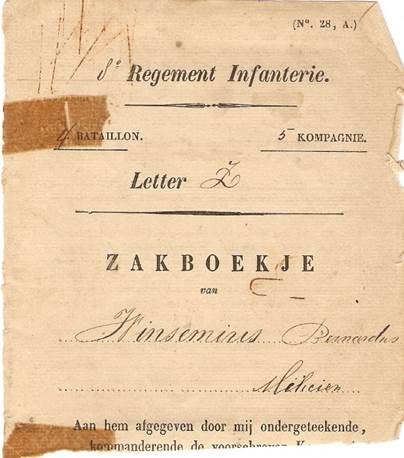 (Nº. 28, A.)
8e Regement Infanterie.
4 BATAILLON. 5 KOMPAGNIE.
Letter Z
ZAKBOEKJE
van
Winsemius Bernardus
Milicien
Aan hem afgegeven door mij ondergeteekende,
kommanderende de voorschreven